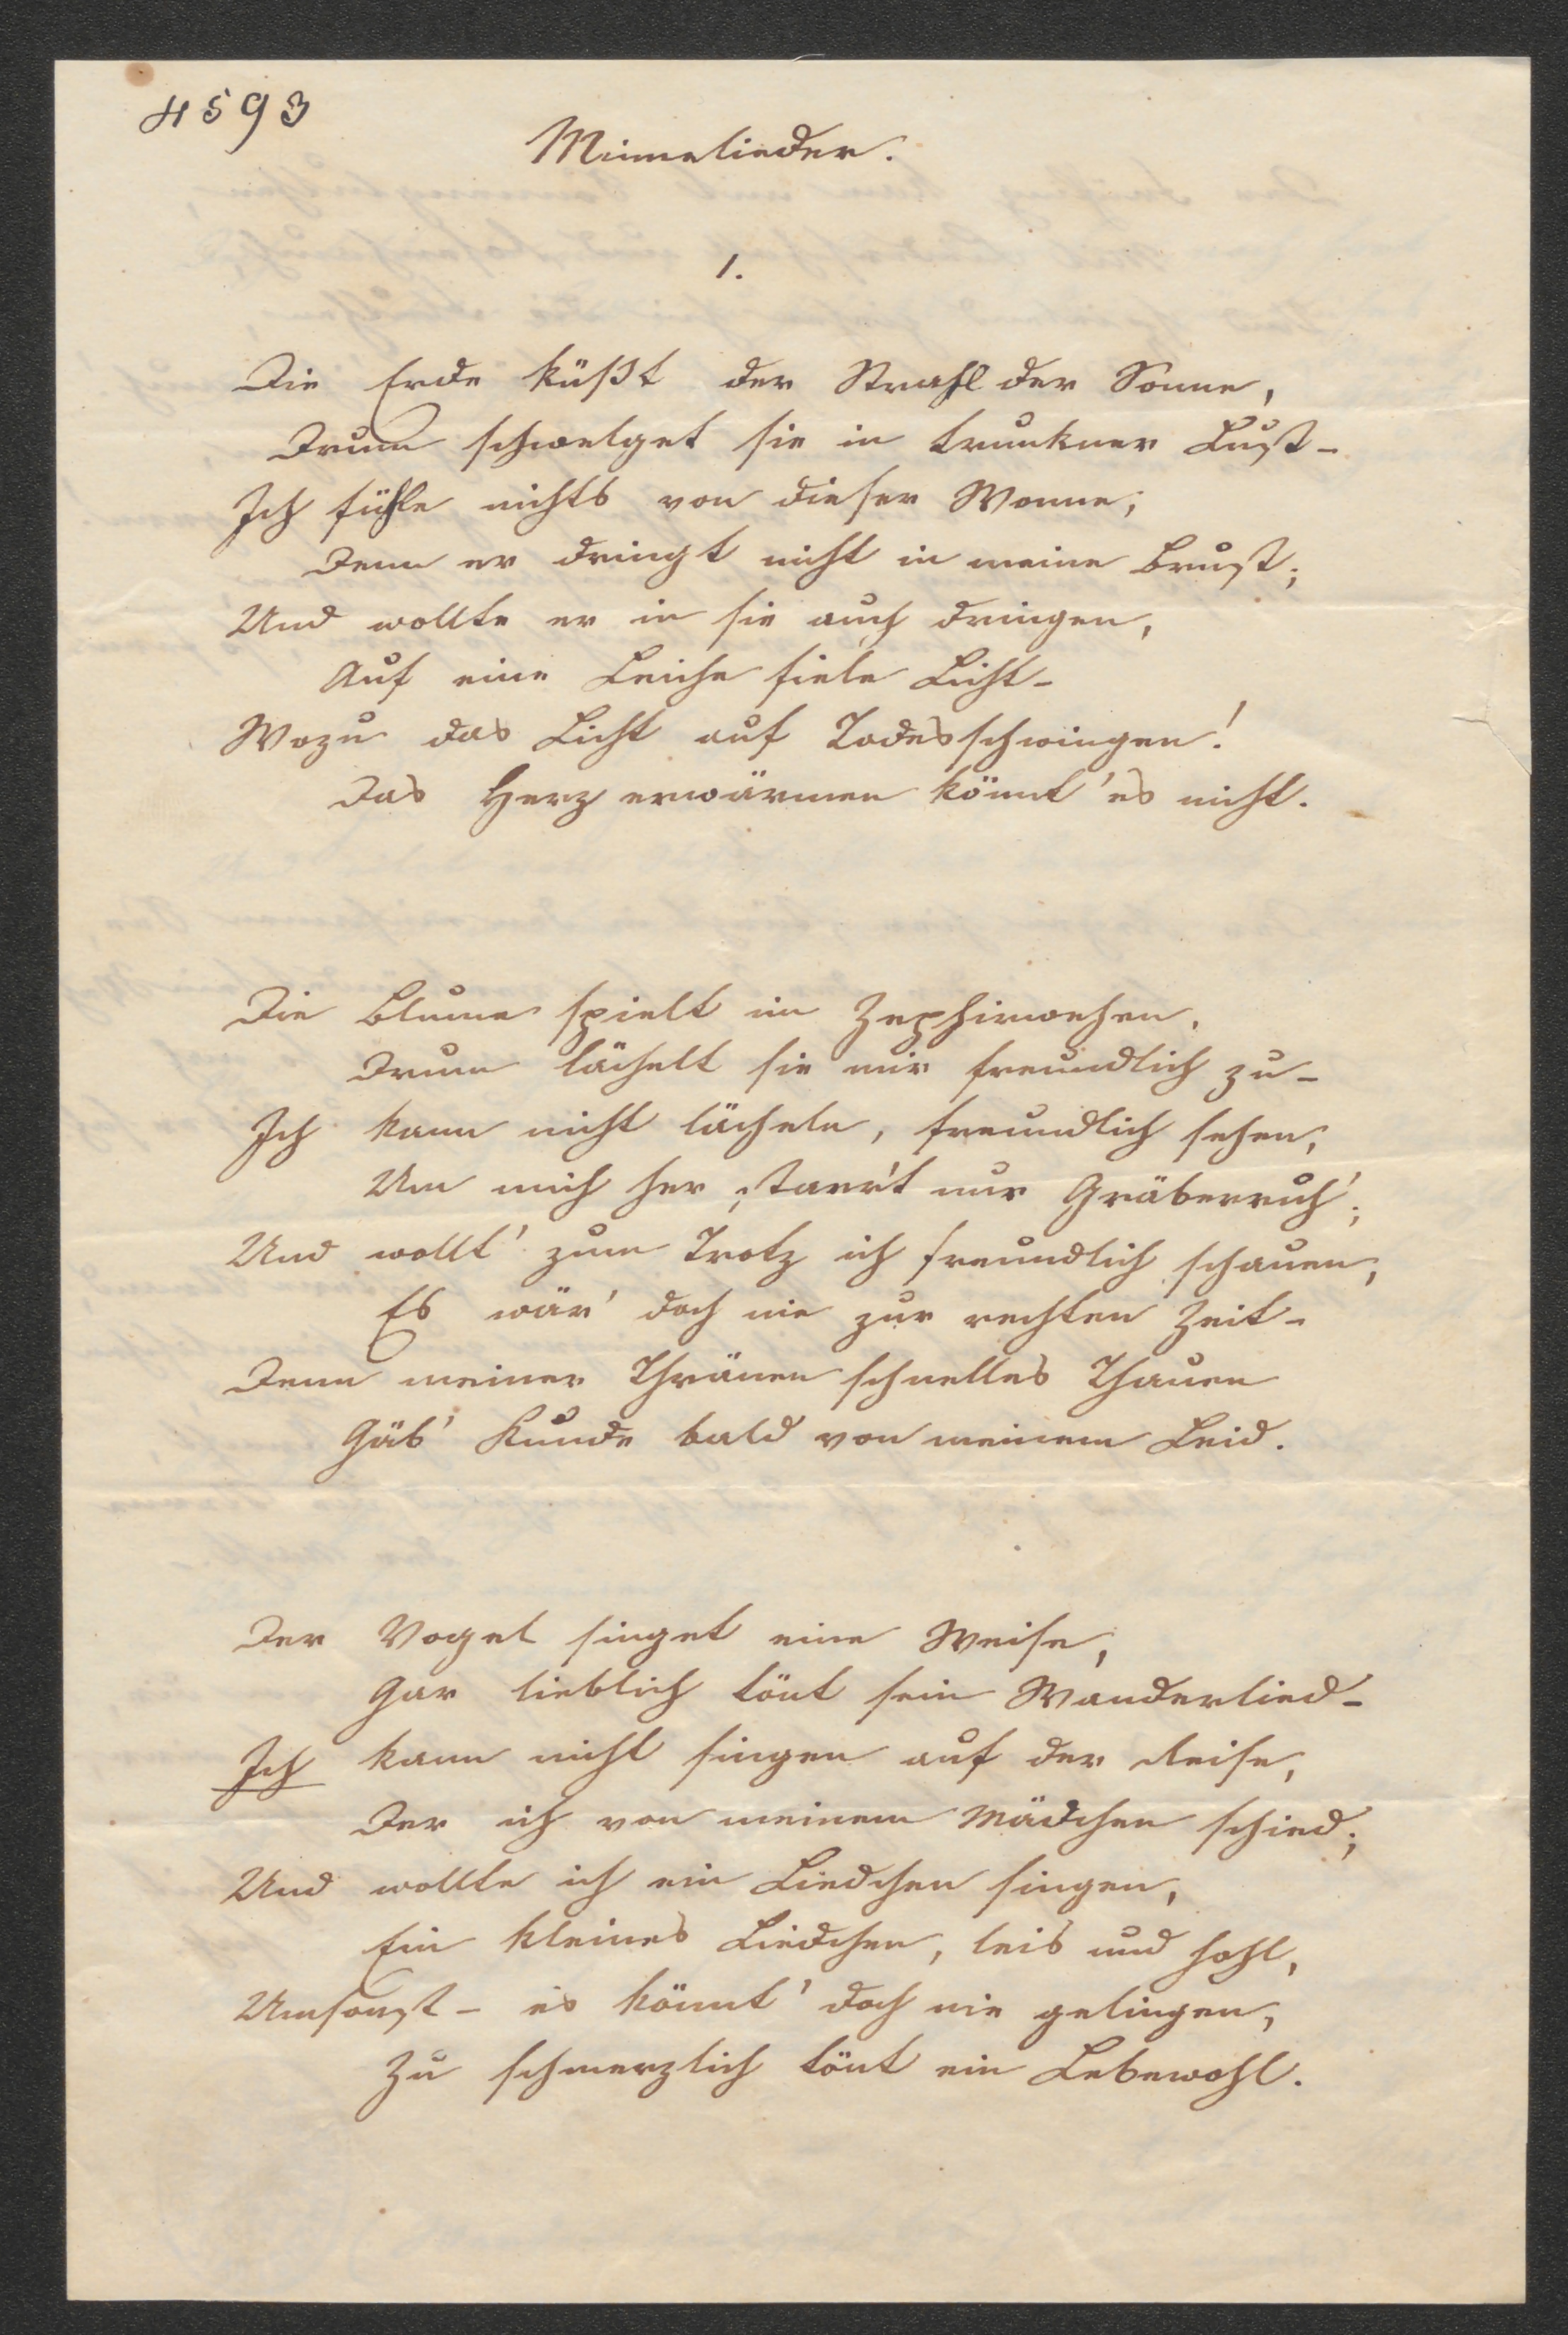 4593
Minnelieder.
1.
Die Erde küßt der Strahl der Sonne,
Drum schwelget sie in trunkner Lust -
Ich fühle nichts von dieser Wonne;
Denn er dringt nicht in meine Brust;
Und wollte er in sie auch dringen,
Auf eine Leiche fiele Licht -
Wozu das Licht auf Todesschwingen!
Das Herz erwärmen könnt' es nicht.
Die Blume spielt im Zephirwehen,
Drum lächelt sie mir freundlich zu -
Ich kann nicht lächeln, freundlich sehen,
Um mich her starr't nur Gräberruh';
Und wollt' zum Trotz ich freundlich schauen,
Es wär' doch nie zur rechten Zeit -
Denn meiner Thränen schnelles Thauen
Gäb' Kunde bald von meinem Leid.
Der Vogel singet eine Weise,
Gar lieblich tönt sein Wanderlied -
Ich kann nicht singen auf der Reise,
Der ich von meinem Mädchen schied;
Und wollte ich ein Liedchen singen,
Ein kleines Liedchen, leis und hohl,
Umsonst - es könnt' doch nie gelingen,
Zu schmerzlich tönt ein Lebewohl.